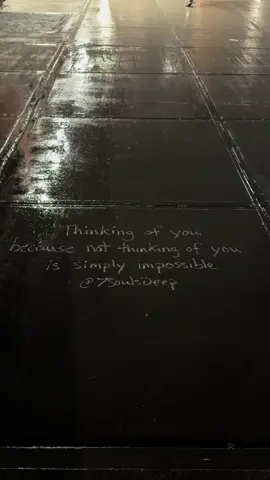 Thinking of you
because not thinking of you
is simply impossible
@7SoulsDeep